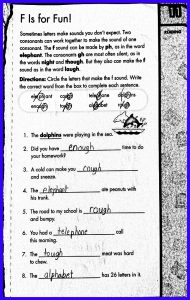 F Is for Fun!
Sometimes letters make sounds you don't expect. Two
consonants can work together to make the sound of one
consonant. The f sound can be made by ph, as in the word
elephant. The consonants gh are most often silent, as in
the words night and though. But they also can make the f
sound as in the word laugh.
Directions: Circle the letters that make the f sound. Write
the correct word from the box to complete each sentence.
elephant
enough
alphabet
1. The dolphins were playing in the sea.
2. Did you have enough time to do
your homework?
3. A cold can make you cough
and sneeze.
4. The elephant ate peanuts with
his trunk.
5. The road to my school is rough
and bumpy.
6. You had a telephone call
this morning.
7. The tough meat was hard
to chew.
8. The alphabet has 26 letters in it.
11
READING